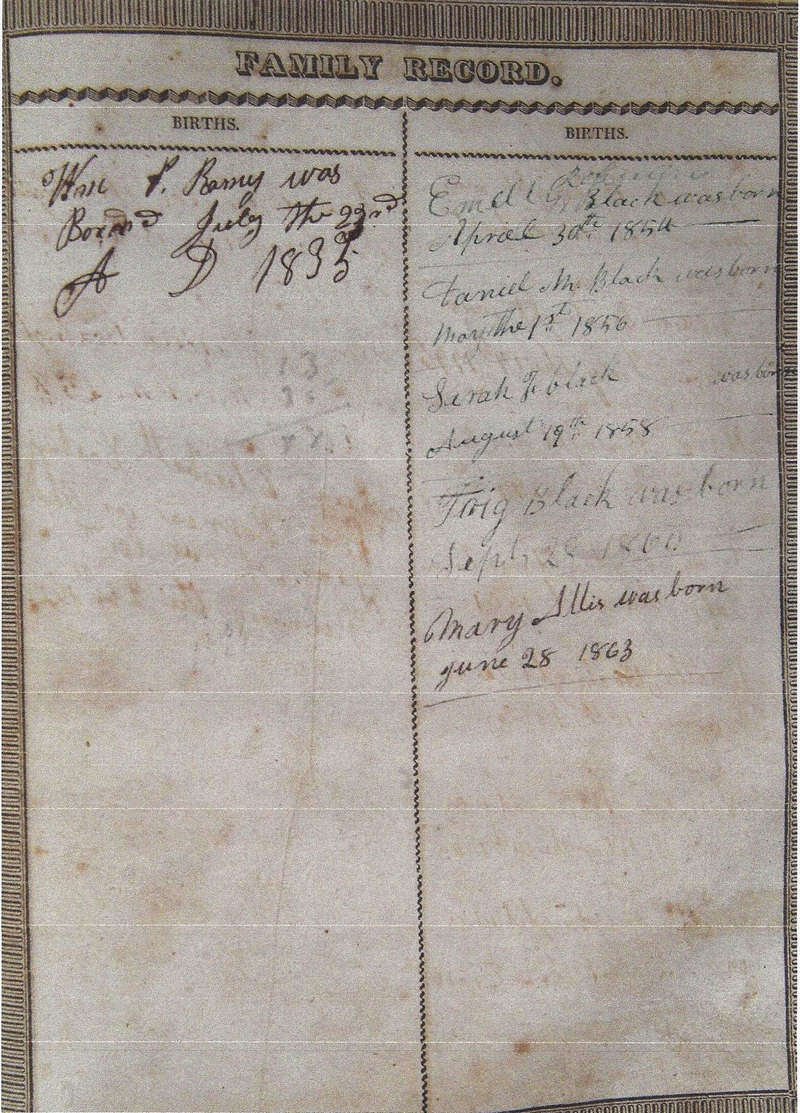 FAMILY RECORD.
BIRTHS.
Wm P. Ramy was
Bornd July the 23rd
A D 1835
13
BIRTHS.
Emell Black was born
Apriel 30th 1854
Daniel M. Black was born
May the 1st 1856
Sarah J black was born
August 19th 1858
Twig Black was born
Sept 28 1860
Mary Allis was born
June 28 1863